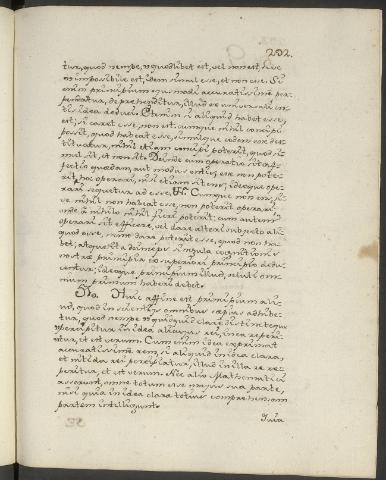 232.
tur, quod nempe, vel quodlibet est, vel non est, sive
impossibile est, idem simul esse, et non esse. Si
enim principium ejusmodi accuratissime per-
pendatur, deprehenditur, illud ex universali en-
tis idea deduci. Etenim si aliquid habet esse,
est; si caret esse, non est; cumque nihil concipi
possit, quod habeat esse, simulque eodem esse des-
tituatur, nihil etiam concipi poterit, quod si-
mul sit, et non sit. Deinde cum operatio sit
quaedam, aut modus entis, ens non pote-
rit operari, nisi etiam sit ens; ideoque ope-
rari sequetur ad esse. Cumque non ens, si-
ve nihil non habeat esse, non poterit operari,
unde a nihilo nihil fieri poterit; cum autem
operari sit efficere, vel dare alteri subjecto ali-
quod esse, nemo dare poterit esse, quod non ha-
bet; atque ita deinceps singula cognitionis
nostrae principia ex superiori principio dedu-
centur; ideoque principium illud, veluti om-
nium primum haberi debet.
Huic affine est principium ali-
ud, quod in scientiis omnibus saepius adhibe-
tur, quod nempe quidquid clare, distincteque
percipitur in idea alicujus rei, in ea reperi-
tur, et est verum. Cum enim idea exprimat
accuratissime rem, si aliquid in idea clara,
et nitida rei percipiatur, illud in illa re re-
peritur, et est verum. Nec alio Mathematici
asserunt, omne totum esse majus sua parte,
nisi quia in idea clara totius comprehensam
partem intelligunt.
Quia